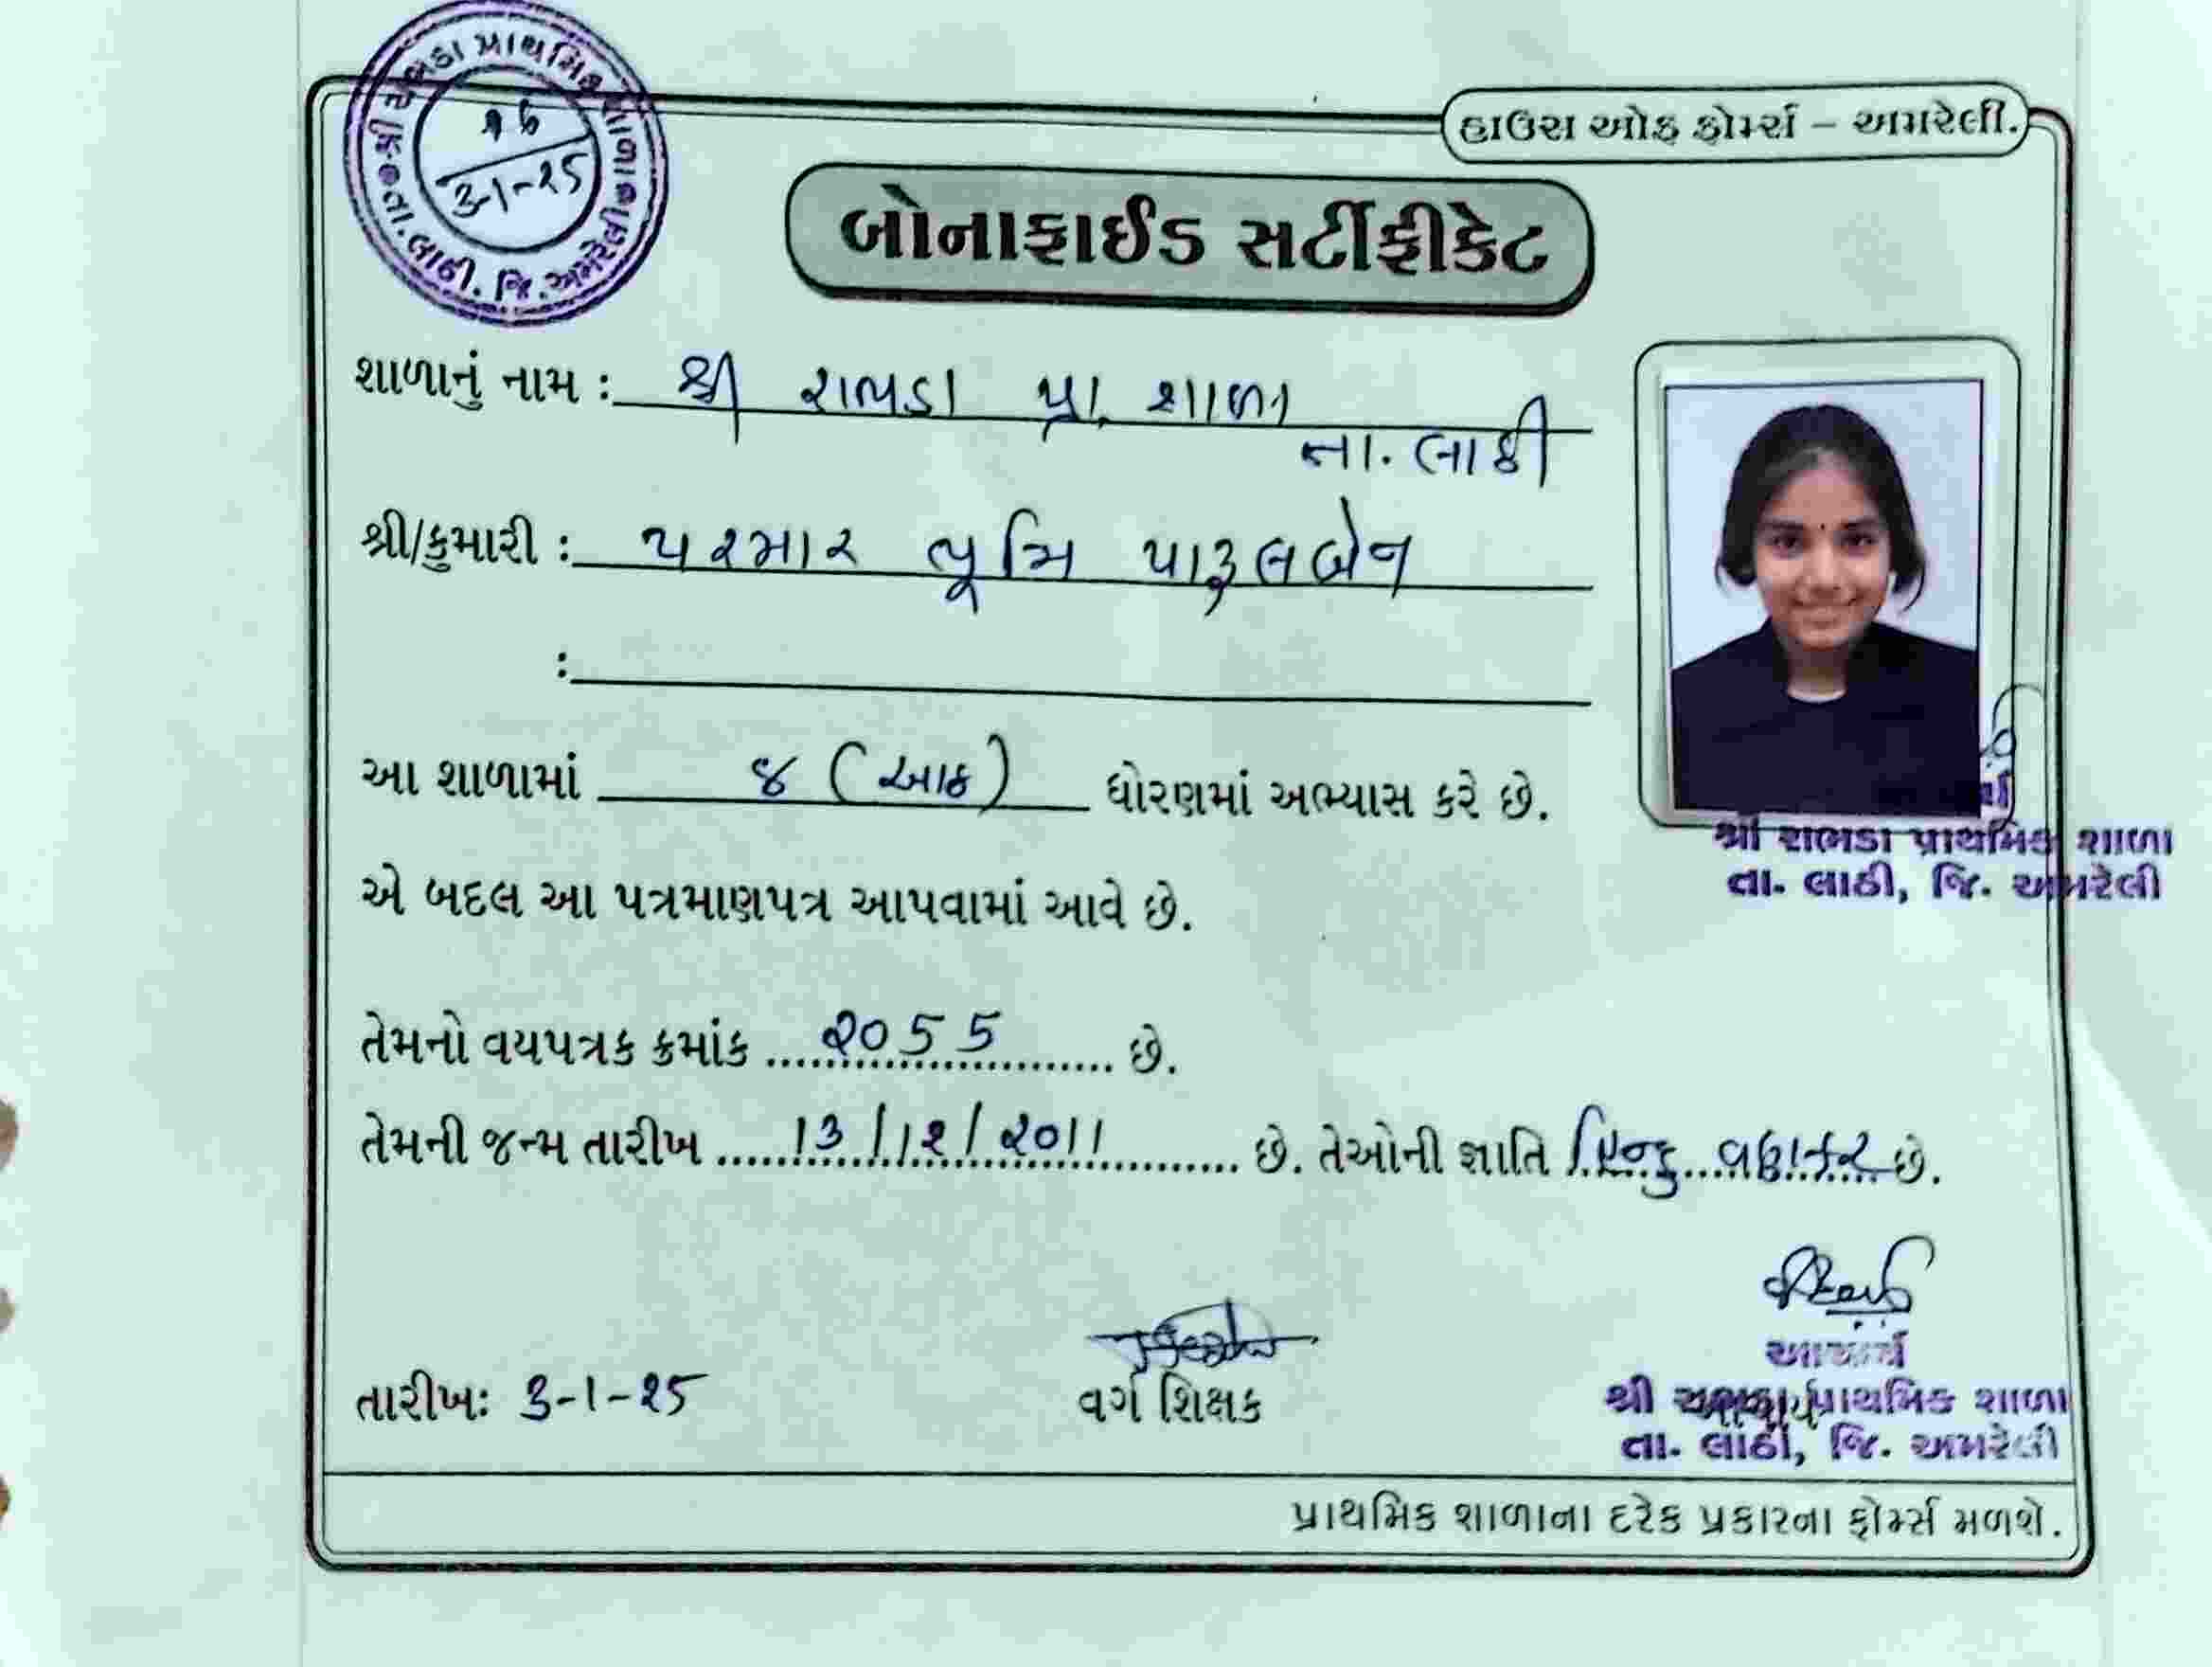 શ્રી રાભડા પ્રાથમિક શાળા
તા. લાઠી. જિ. અમરેલી
૧૬
3-1-૨5
હાઉસ ઓફ ફોર્મ્સ – અમરેલી.
બોનાફાઈડ સર્ટીફીકેટ
શાળાનું નામ : શ્રી રાભડા પ્રા. શાળા
તા. લાઠી
શ્રી/કુમારી : પરમાર ભૂમિ પારૂલબેન
:
આ શાળામાં ૪ (આઠ) ધોરણમાં અભ્યાસ કરે છે.
શ્રી રાભડા પ્રાથમિક શાળા
તા. લાઠી, જિ. અમરેલી
એ બદલ આ પત્રમાણપત્ર આપવામાં આવે છે.
તેમનો વયપત્રક ક્રમાંક ૨૦55 છે.
તેમની જન્મ તારીખ 13/1૨/૨૦11 છે. તેઓની જ્ઞાતિ હિન્દુ વણકર છે.
તારીખઃ 3-1-૨5
વર્ગ શિક્ષક
આચાર્ય
શ્રી રાભડા પ્રાથમિક શાળા
તા. લાઠી, જિ. અમરેલી
પ્રાથમિક શાળાના દરેક પ્રકારના ફોર્મ્સ મળશે.